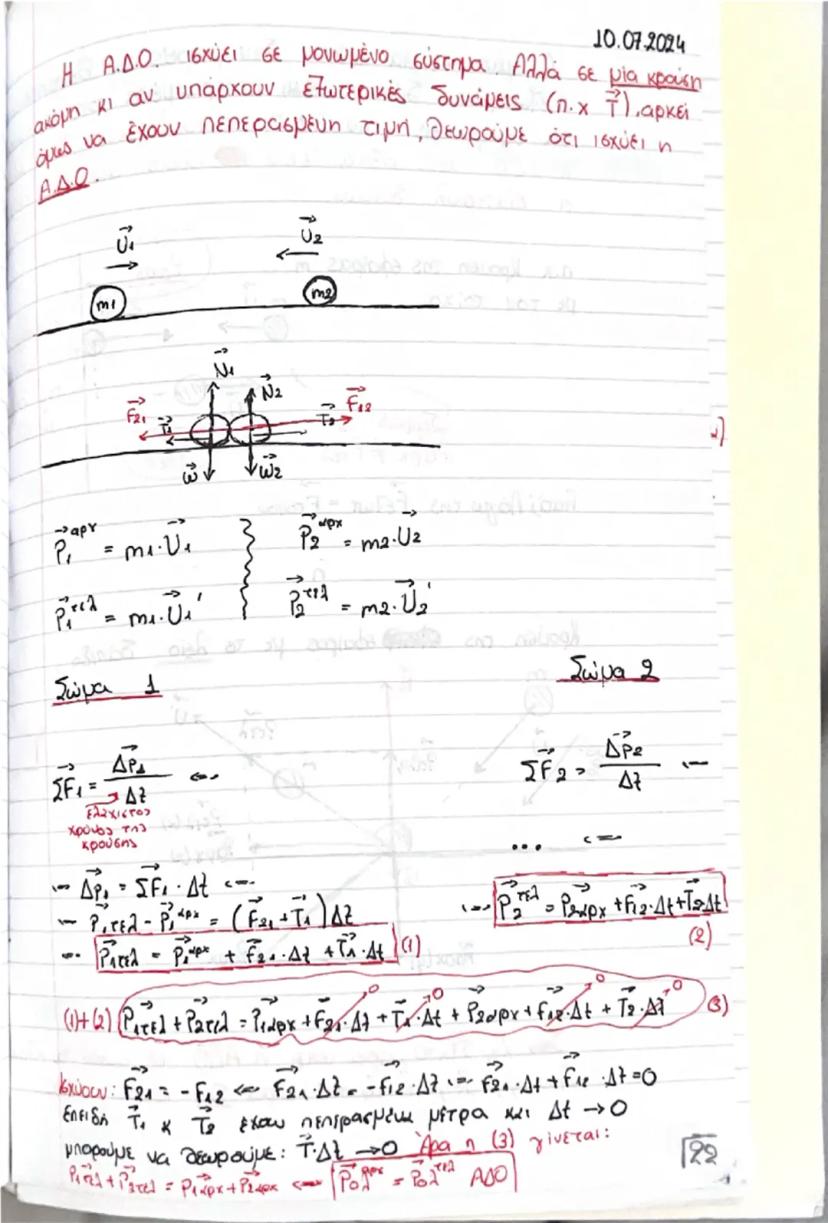 10.07.2024
Η Α.Δ.Ο. ισχύει σε μονωμένο σύστημα. Αλλά σε μία κρούση
ακόμη κι αν υπάρχουν εξωτερικές δυνάμεις (π.χ T⃗), αρκεί
όμως να έχουν πεπερασμένη τιμή, θεωρούμε ότι ισχύει η
Α.Δ.Ο.
U⃗1 U⃗2
m1 m2
N⃗1 N⃗2
F⃗21 T⃗1 T⃗2 F⃗12
w⃗ w⃗2
P⃗1^αρχ = m1·U⃗1 P⃗2^αρχ = m2·U⃗2
P⃗1^τελ = m1·U⃗1' P⃗2^τελ = m2·U⃗2'
Σώμα 1 Σώμα 2
ΣF⃗1 = Δp⃗1/Δt ⇔ ΣF⃗2 = Δp⃗2/Δt ⇔
ελάχιστος
χρόνος της
κρούσης
... ⇔
⇔ Δp⃗1 = ΣF⃗1 · Δt ⇔
⇔ P⃗1τελ - P⃗1^αρχ = (F⃗21 + T⃗1) Δt
⇔ P⃗2^τελ = P⃗2αρχ + F⃗12·Δt + T⃗2·Δt
(2)
⇔ P⃗1τελ = P⃗1^αρχ + F⃗21·Δt + T⃗1·Δt (1)
(1)+(2) P⃗1τελ + P⃗2τελ = P⃗1αρχ + F⃗21·Δt + T⃗1·Δt + P⃗2αρχ + F⃗12·Δt + T⃗2·Δt (3)
0 0 0 0
Ισχύουν: F⃗21 = -F⃗12 ⇔ F⃗21·Δt = -F⃗12·Δt ⇔ F⃗21·Δt + F⃗12·Δt = 0
Επειδή T⃗1 κ T⃗2 έχουν πεπερασμένα μέτρα και Δt → 0
μπορούμε να θεωρούμε: T⃗·Δt → 0 Άρα η (3) γίνεται:
P⃗1τελ + P⃗2τελ = P⃗1αρχ + P⃗2αρχ ⇔ P⃗ολ^αρχ = P⃗ολ^τελ ΑΔΟ
22